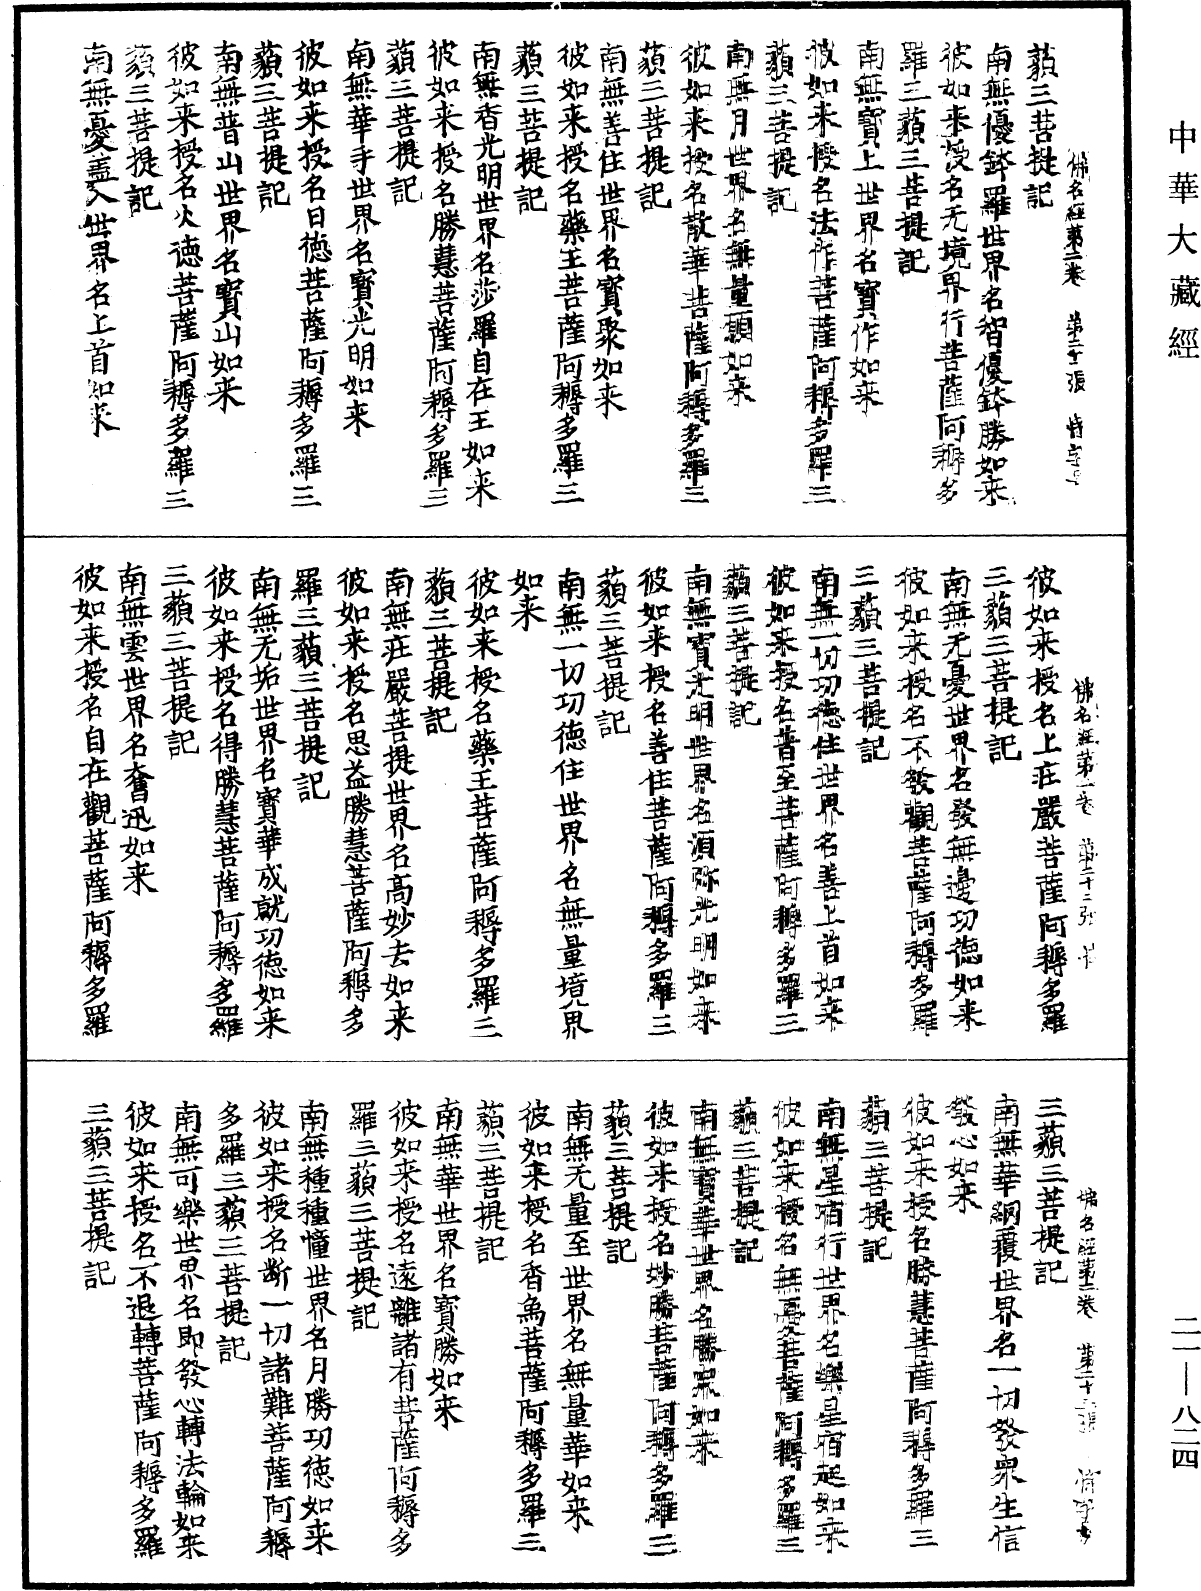 中華大藏經
佛名經第二卷　第二十張　恃字号
藐三菩提記
南無優鉢羅世界名智優鉢勝如来
彼如来授名无境界行菩薩阿耨多
羅三藐三菩提記
南無寶上世界名寶作如来
彼如来授名法作菩薩阿耨多羅三
藐三菩提記
南無月世界名無量願如来
彼如来授名散華菩薩阿耨多羅三
藐三菩提記
南無善住世界名寶聚如来
彼如来授名藥王菩薩阿耨多羅三
藐三菩提記
南無香光明世界名莎羅自在王如来
彼如来授名勝慧菩薩阿耨多羅三
藐三菩提記
南無華手世界名寶光明如来
彼如来授名日德菩薩阿耨多羅三
藐三菩提記
南無普山世界名寶山如来
彼如来授名火德菩薩阿耨多羅三
藐三菩提記
南無憂蓋入世界名上首如来
佛名經第二卷　第二十二張
彼如来授名上莊嚴菩薩阿耨多羅
三藐三菩提記
南無无憂世界名發無邊功德如来
彼如来授名不發觀菩薩阿耨多羅
三藐三菩提記
南無一切功德住世界名善上首如来
彼如来授名普至菩薩阿耨多羅三
藐三菩提記
南無寶光明世界名須弥光明如来
彼如来授名善住菩薩阿耨多羅三
藐三菩提記
南無一切功德住世界名無量境界
如来
彼如来授名藥王菩薩阿耨多羅三
藐三菩提記
南無莊嚴菩提世界名高妙去如来
彼如来授名思益勝慧菩薩阿耨多
羅三藐三菩提記
南無无垢世界名寶華成就功德如来
彼如来授名得勝慧菩薩阿耨多羅
三藐三菩提記
南無雲世界名奮迅如来
彼如来授名自在觀菩薩阿耨多羅
佛名經第二卷　第二十三張
三藐三菩提記
南無華網覆世界名一切發衆生信
發心如来
彼如来授名勝慧菩薩阿耨多羅三
藐三菩提記
南無星宿行世界名樂星宿起如来
彼如来授名無憂菩薩阿耨多羅三
藐三菩提記
南無寶華世界名勝衆如来
彼如来授名妙勝菩薩阿耨多羅三
藐三菩提記
南無无量至世界名無量華如来
彼如来授名香烏菩薩阿耨多羅三
藐三菩提記
南無華世界名寶勝如来
彼如来授名遠離諸有菩薩阿耨多
羅三藐三菩提記
南無種種幢世界名月勝功德如来
彼如来授名断一切諸難菩薩阿耨
多羅三藐三菩提記
南無可樂世界名即發心轉法輪如来
彼如来授名不退轉菩薩阿耨多羅
三藐三菩提記
二一—八二四